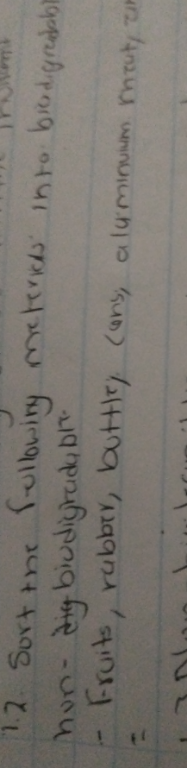 1.2. Sort the following materials into biodigradabl
non- biodigradable.
- Fruits, rubber, buttle, cans, aluminium meat,
=